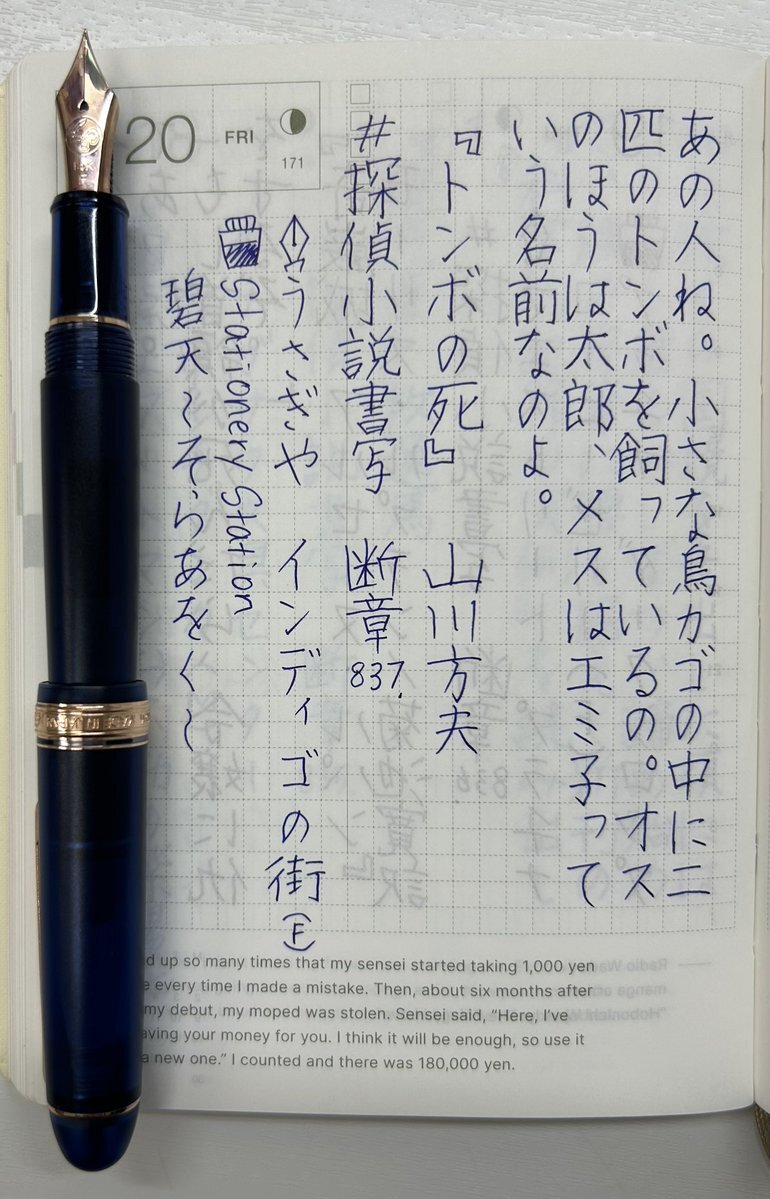 20 FRI
171
あの人ね。小さな鳥カゴの中に二
匹のトンボを飼っているの。オス
のほうは太郎、メスはエミ子って
いう名前なのよ。
『トンボの死』 山川方夫
#探偵小説書写 断章837.
うさぎや インディゴの街(F)
Stationery Station
碧天~そらあをく~
d up so many times that my sensei started taking 1,000 yen
e every time I made a mistake. Then, about six months after
my debut, my moped was stolen. Sensei said, “Here, I’ve
aving your money for you. I think it will be enough, so use it
a new one.” I counted and there was 180,000 yen.